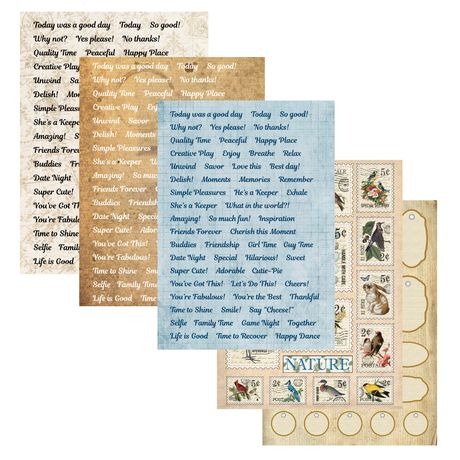 Today was a good day Today So good!
Why not? Yes please! No thanks!
Quality Time Peaceful Happy Place
Creative Play
Unwind Savor
Delish! Moments
Simple Pleasures
She's a Keeper
Amazing! So
Friends Forever
Buddies
Date Night
Super Cute!
You've Got This!
You're Fabulous
Time to Shine
Selfie Family
Life is Good
Today was a good day Today So good!
Why not? Yes please! No thanks!
Quality Time Peaceful Happy Place
Creative Play Enjoy
Unwind Savor
Delish! Moments
Simple Pleasures
She's a Keeper
Amazing! So
Friends Forever
Buddies Friendship
Date Night
Super Cute!
You've Got This!
You're Fabulous!
Time to Shine
Selfie Family
Life is Good
Today was a good day Today So good!
Why not? Yes please! No thanks!
Quality Time Peaceful Happy Place
Creative Play Enjoy Breathe Relax
Unwind Savor Love this Best day!
Delish! Moments Memories Remember
Simple Pleasures He's a Keeper Exhale
She's a Keeper What in the world?!
Amazing! So much fun! Inspiration
Friends Forever Cherish this Moment
Buddies Friendship Girl Time Guy Time
Date Night Special Hilarious! Sweet
Super Cute! Adorable Cutie-Pie
You've Got This! Let's Do This! Cheers!
You're Fabulous! You're the Best Thankful
Time to Shine Smile! Say "Cheese!"
Selfie Family Time Game Night Together
Life is Good Time to Recover Happy Dance
HANDLE WITH CARE
5¢
POSTAGE
NATURE
2¢
5¢
2¢
5¢